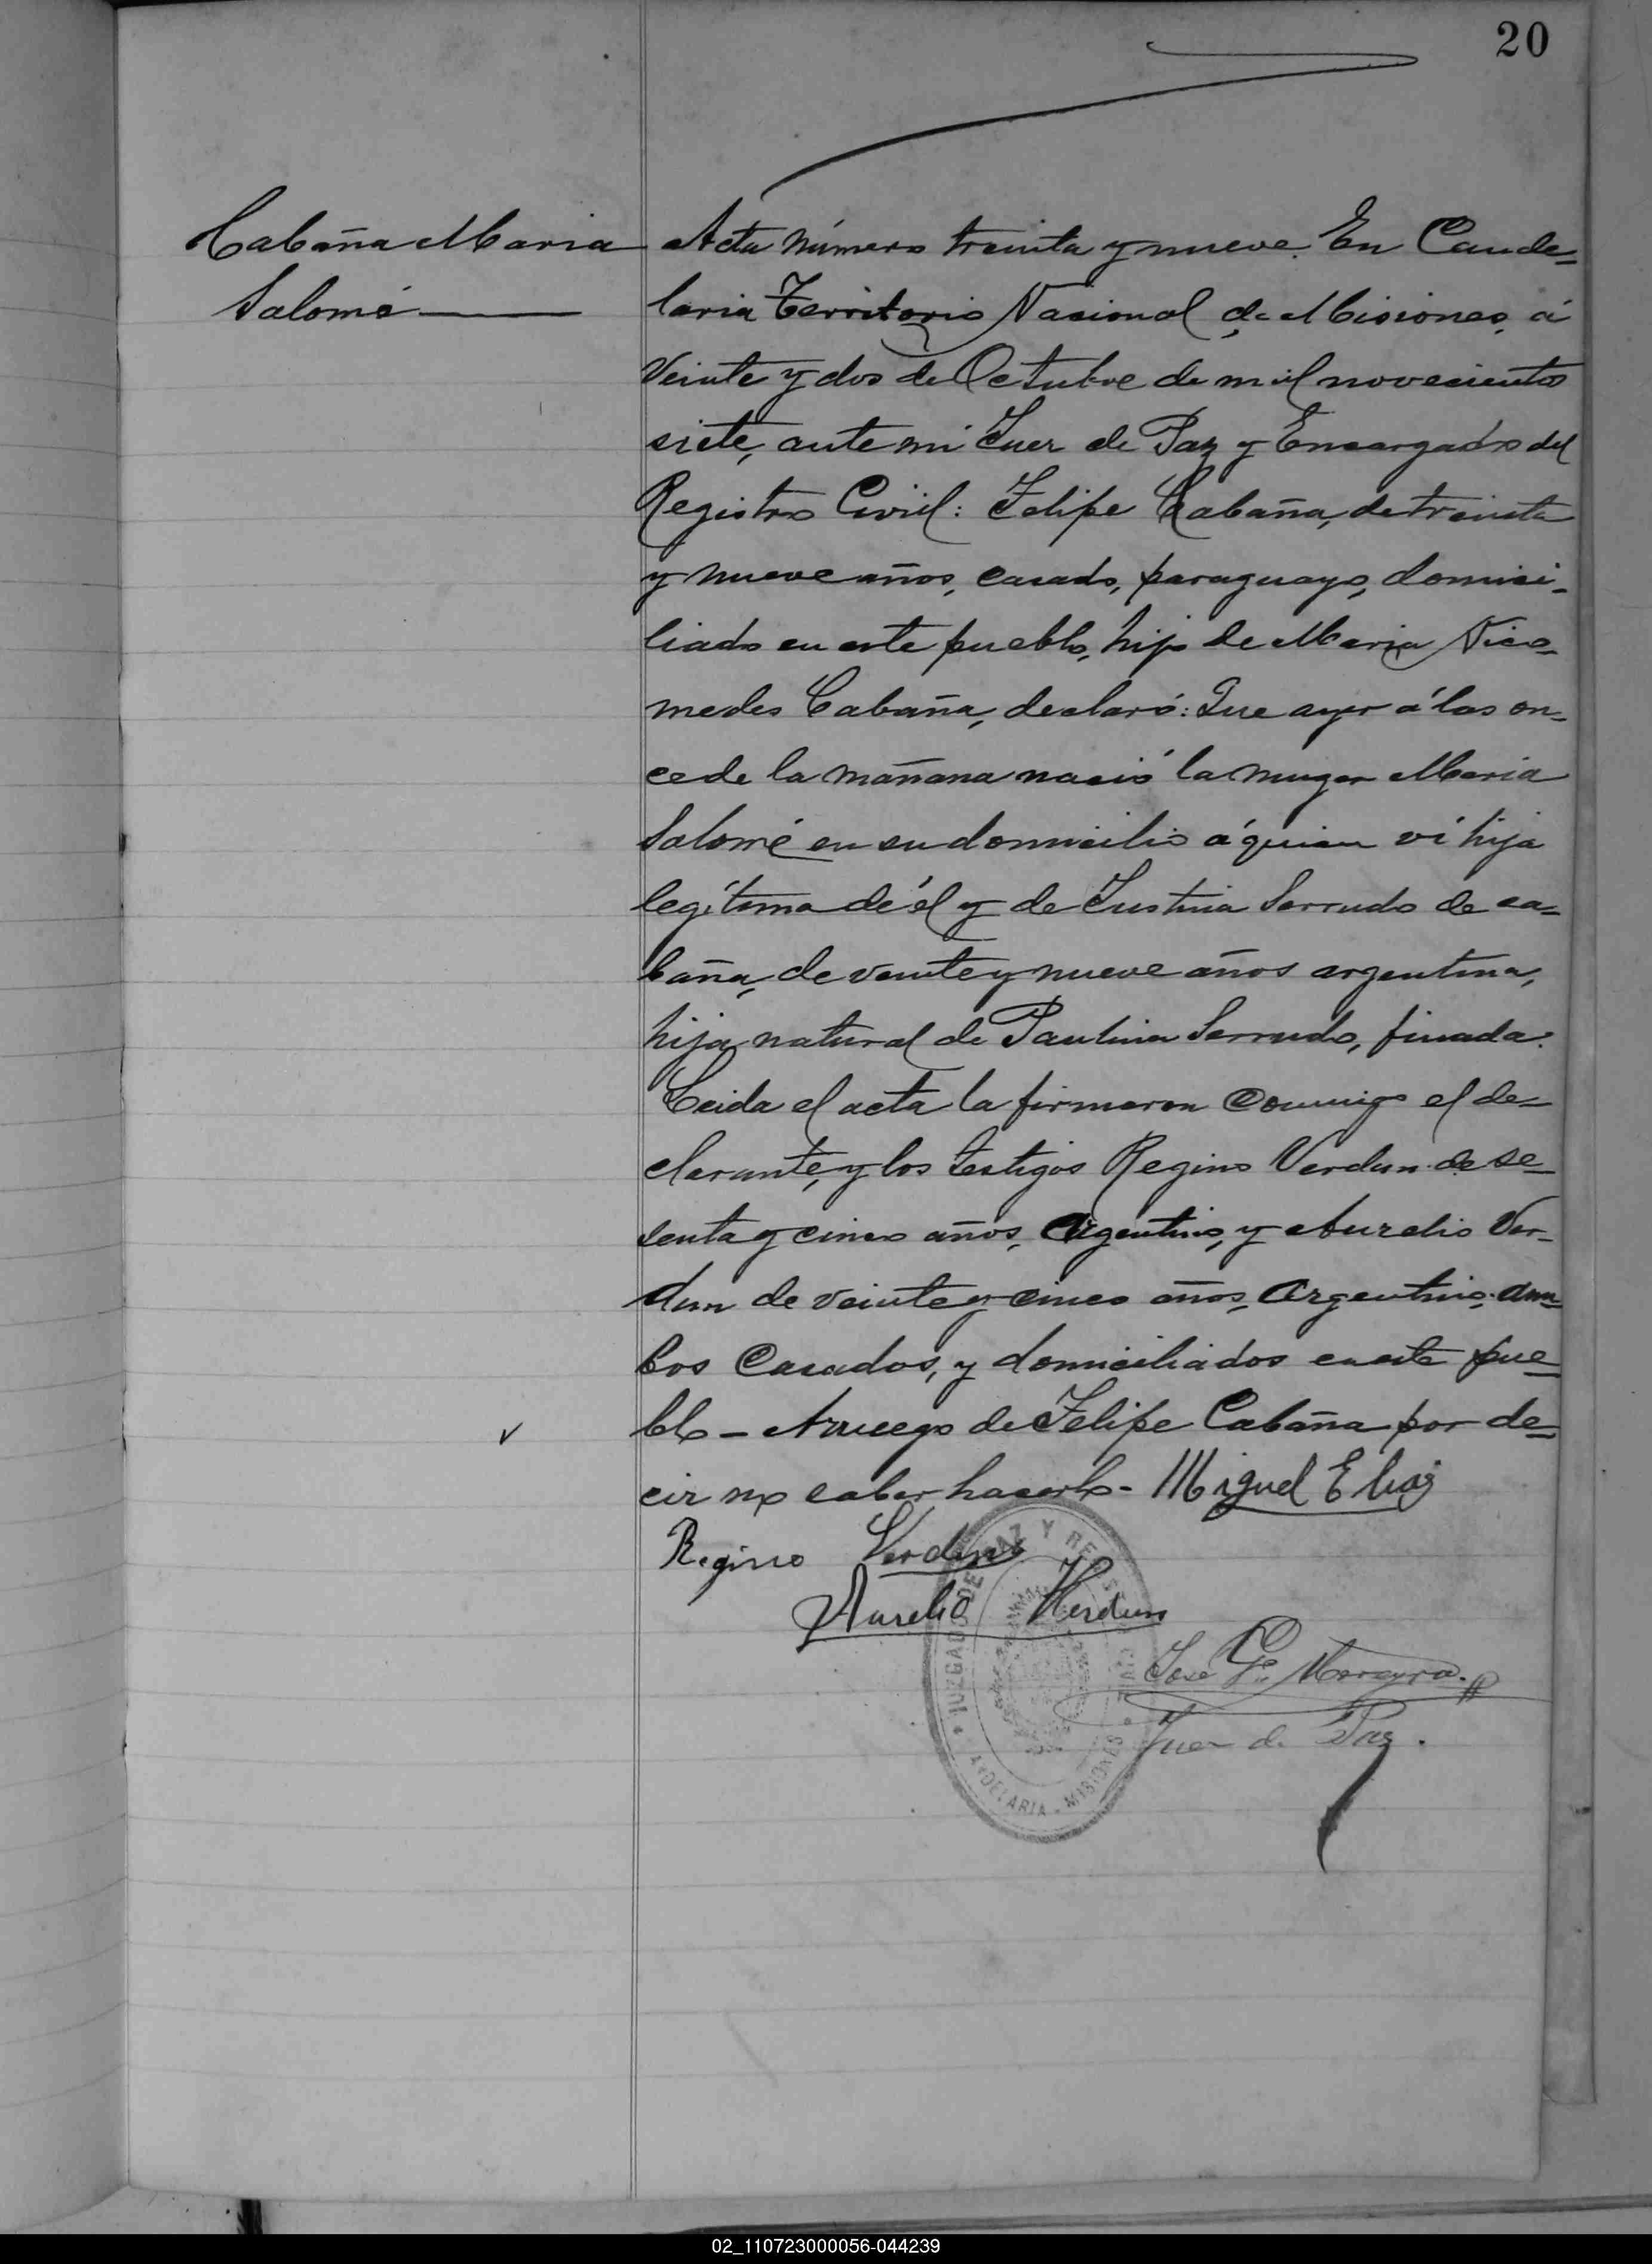 20
Cabaña Maria
Salomé
Acta número treinta y nueve. En Cande=
laria Territorio Nacional de Misiones, á
veinte y dos de Octubre de mil novecientos
siete, ante mi Juez de Paz y Encargado del
Registro Civil: Felipe Cabaña, de treinta
y nueve años, casado, paraguayo, domici=
liado en este pueblo, hijo de Maria Nico=
medes Cabaña, declaró: Que ayer á las on=
ce de la mañana nació la muger Maria
Salomé en su domicilio á quien ví hija
legítima de él y de Justina Serrudo de ca=
baña, de veinte y nueve años argentina,
hija natural de Paulina Serrudo, finada.
Leida el acta la firmaron conmigo el de=
clarante, y los testigos Regino Verdun de se=
senta y cinco años, Argentino, y Aurelio Ver=
dun de veinte y cinco años, Argentino, am=
bos Casados, y domiciliados en este pue=
blo – A ruego de Felipe Cabaña por de=
cir no saber hacerlo - Miguel Elias
Regino Verdun
Aurelio Verdun
JUZGADO DE PAZ Y REGISTRO CIVIL
CANDELARIA - MISIONES
José Mereyra
Juez de Paz.
02_110723000056-044239